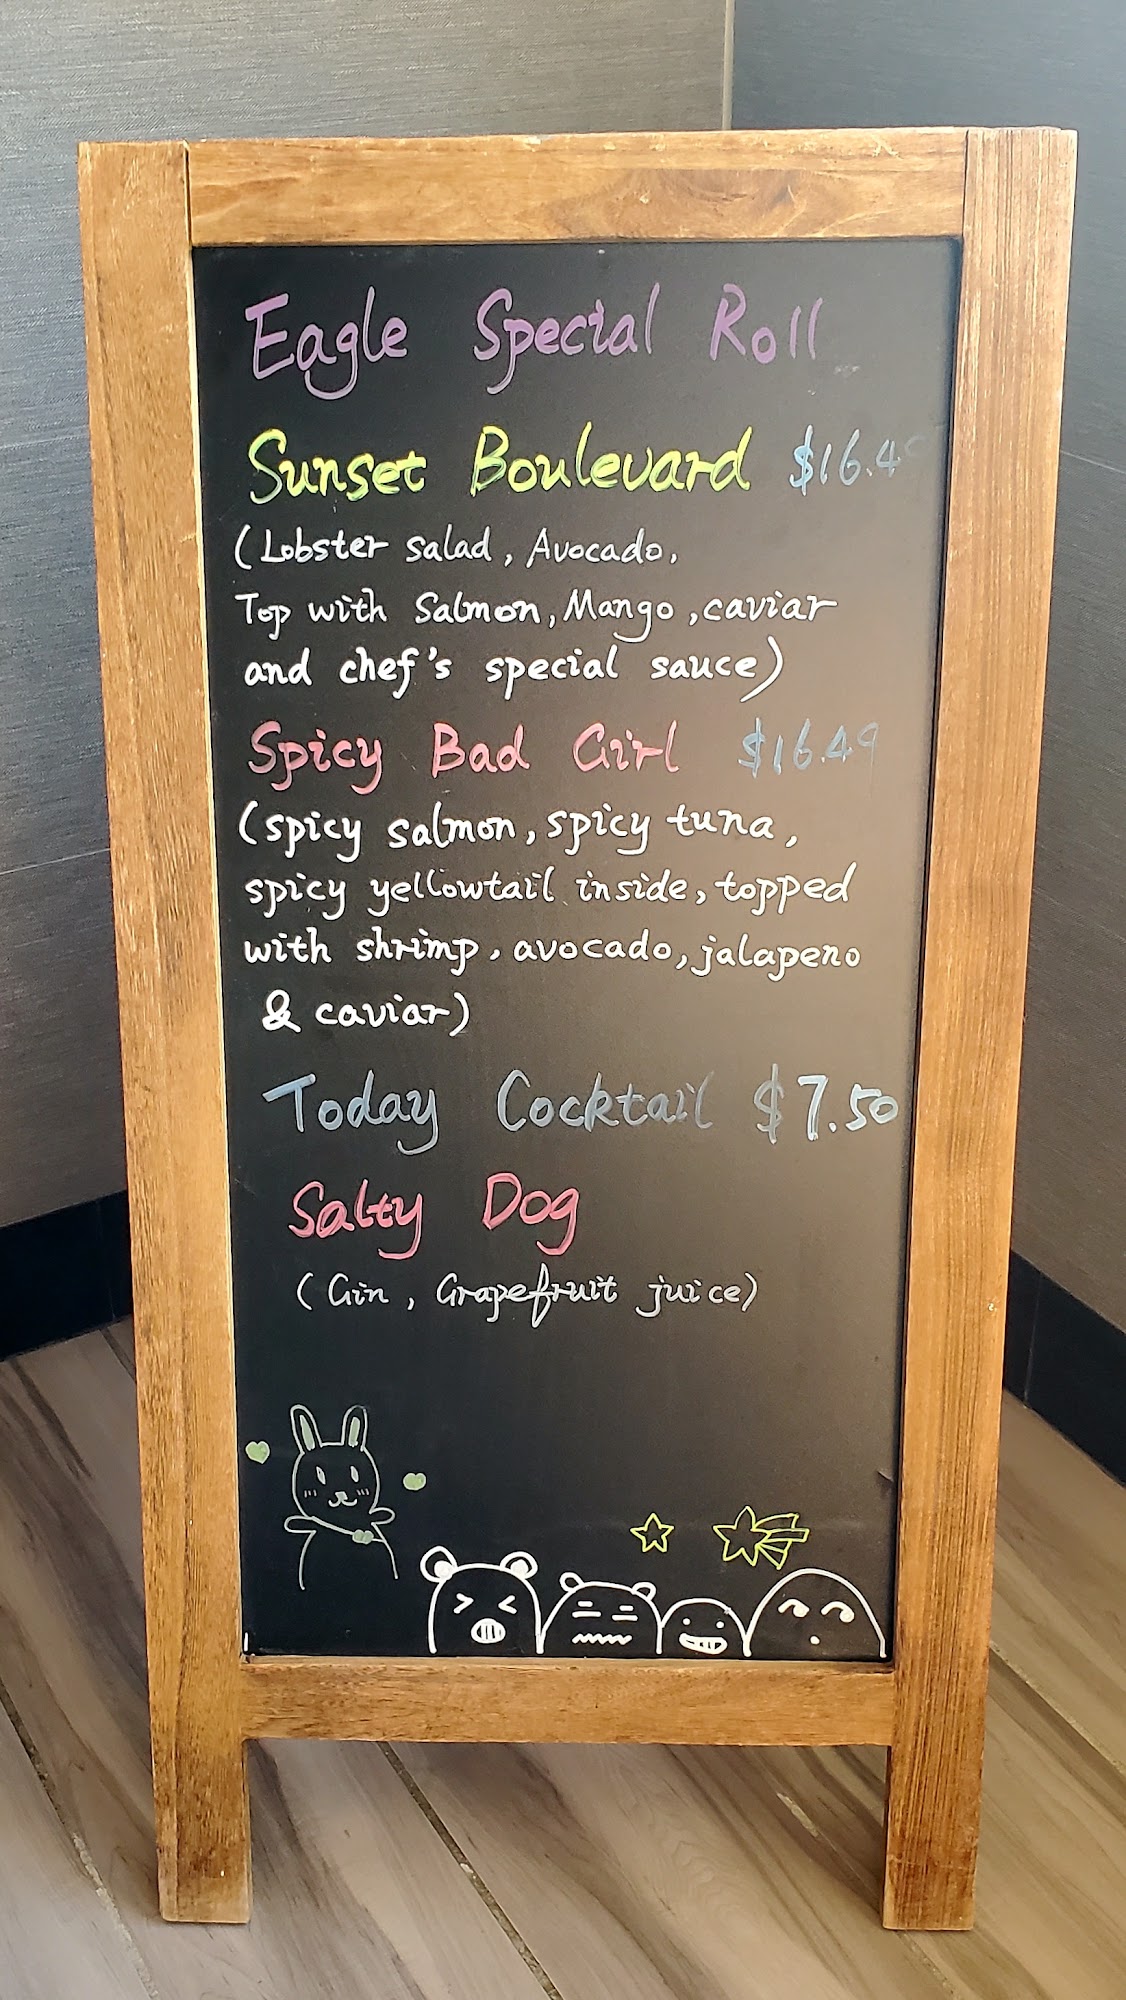 Eagle Special Roll
Sunset Boulevard $16.4
(Lobster salad, Avocado,
Top with Salmon, Mango, caviar
and chef's special sauce)
Spicy Bad Girl $16.49
(spicy salmon, spicy tuna,
spicy yellowtail inside, topped
with shrimp, avocado, jalapeno
& caviar)
Today Cocktail $7.50
Salty Dog
(Gin, Grapefruit juice)